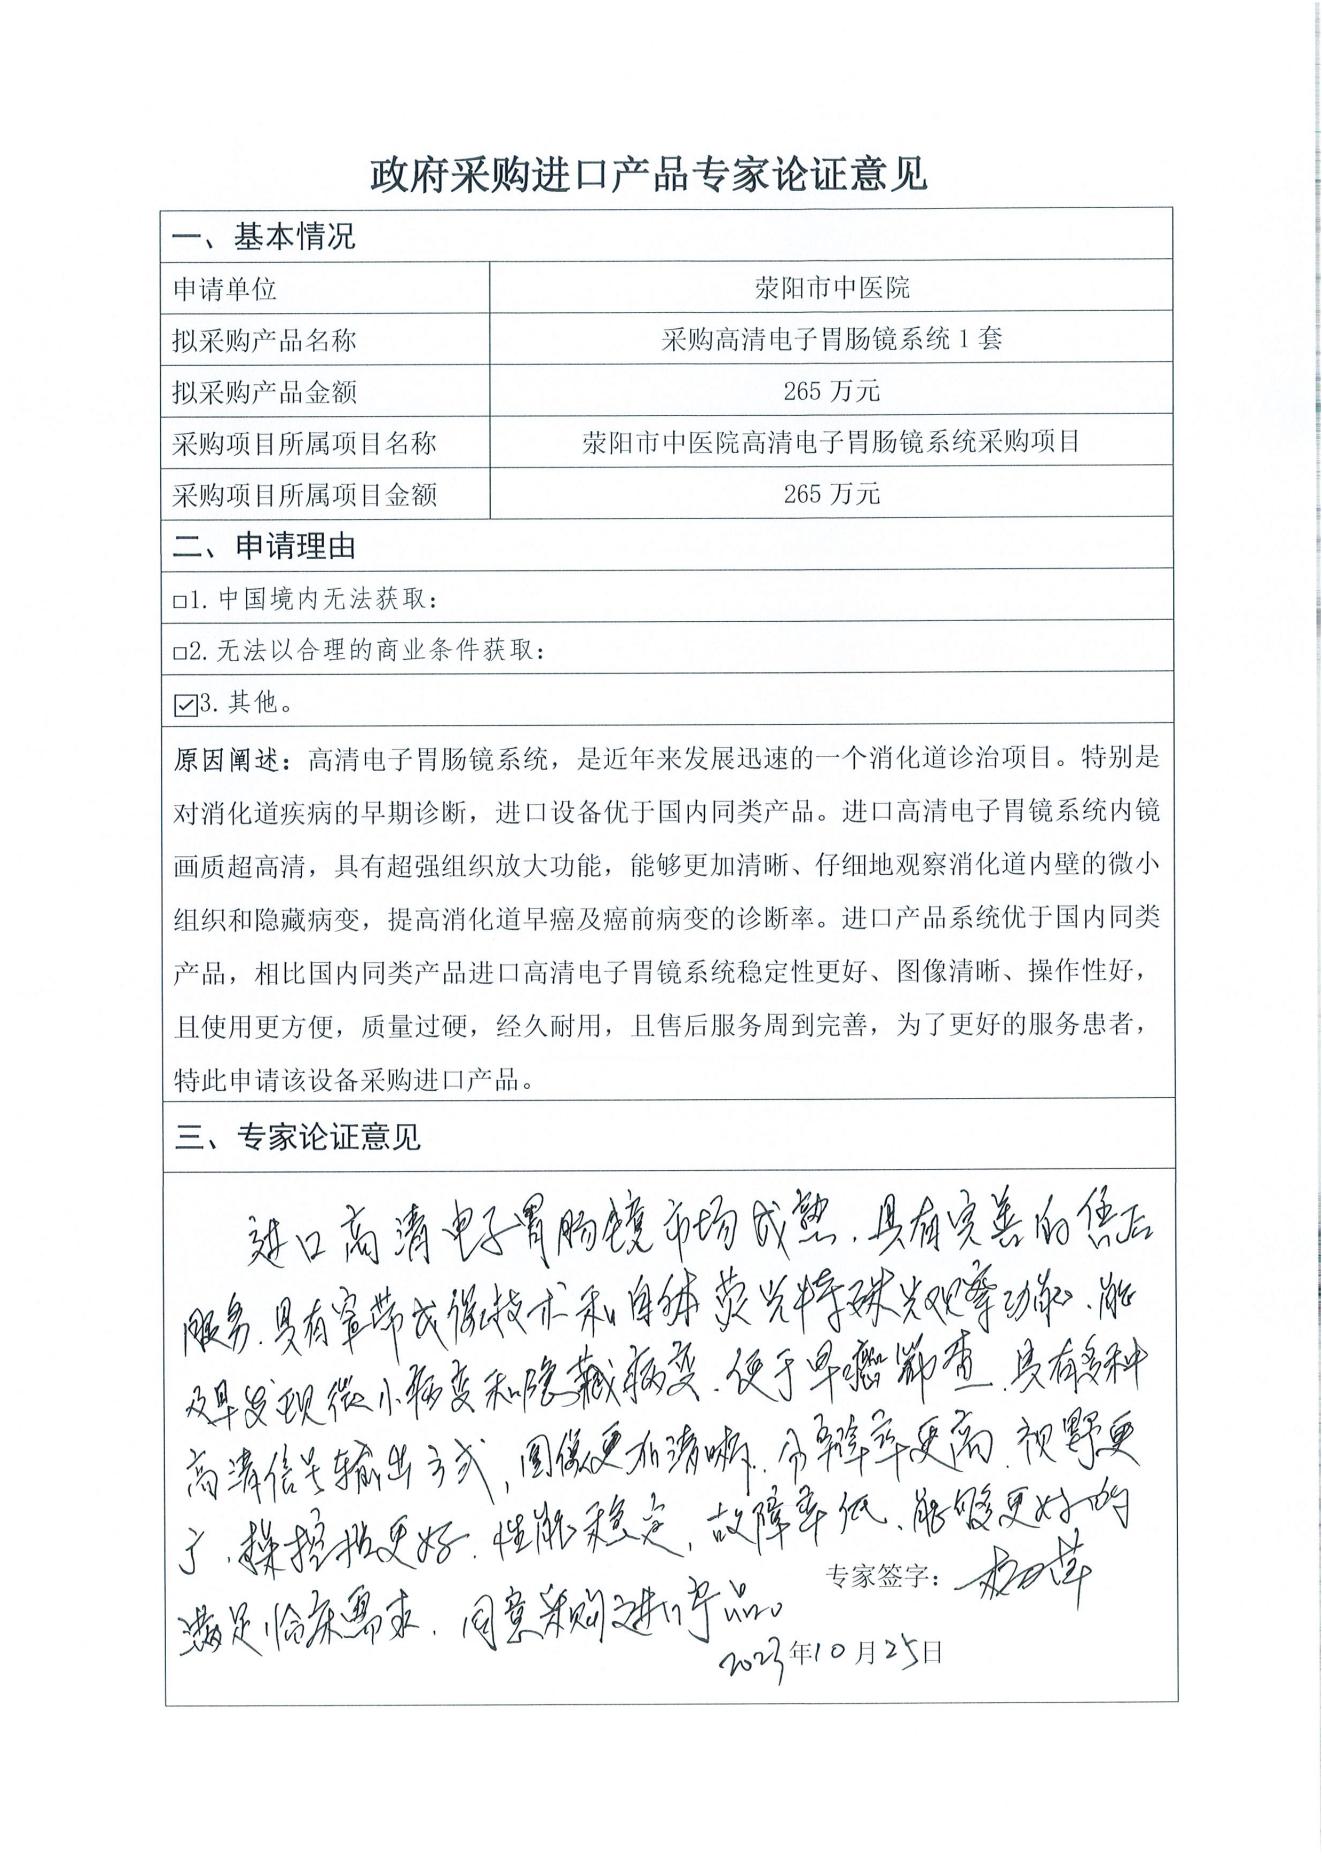 政府采购进口产品专家论证意见
一、基本情况
申请单位 荥阳市中医院
拟采购产品名称 采购高清电子胃肠镜系统1套
拟采购产品金额 265万元
采购项目所属项目名称 荥阳市中医院高清电子胃肠镜系统采购项目
采购项目所属项目金额 265万元
二、申请理由
□1.中国境内无法获取：
□2.无法以合理的商业条件获取：
☑3.其他。
原因阐述：高清电子胃肠镜系统，是近年来发展迅速的一个消化道诊治项目。特别是
对消化道疾病的早期诊断，进口设备优于国内同类产品。进口高清电子胃镜系统内镜
画质超高清，具有超强组织放大功能，能够更加清晰、仔细地观察消化道内壁的微小
组织和隐藏病变，提高消化道早癌及癌前病变的诊断率。进口产品系统优于国内同类
产品，相比国内同类产品进口高清电子胃镜系统稳定性更好、图像清晰、操作性好，
且使用更方便，质量过硬，经久耐用，且售后服务周到完善，为了更好的服务患者，
特此申请该设备采购进口产品。
三、专家论证意见
进口高清电子胃肠镜市场成熟，具有完善的售后
服务，具有窄带成像技术和自体荧光特殊光观察功能，能
及早发现微小病变和隐藏病变，便于早癌筛查，具有多种
高清信号输出方式，图像更加清晰，分辨率更高，视野更
广，操控性更好，性能稳定，故障率低，能够更好的
满足临床需求，同意采购进口产品。
专家签字：
2023年10月25日